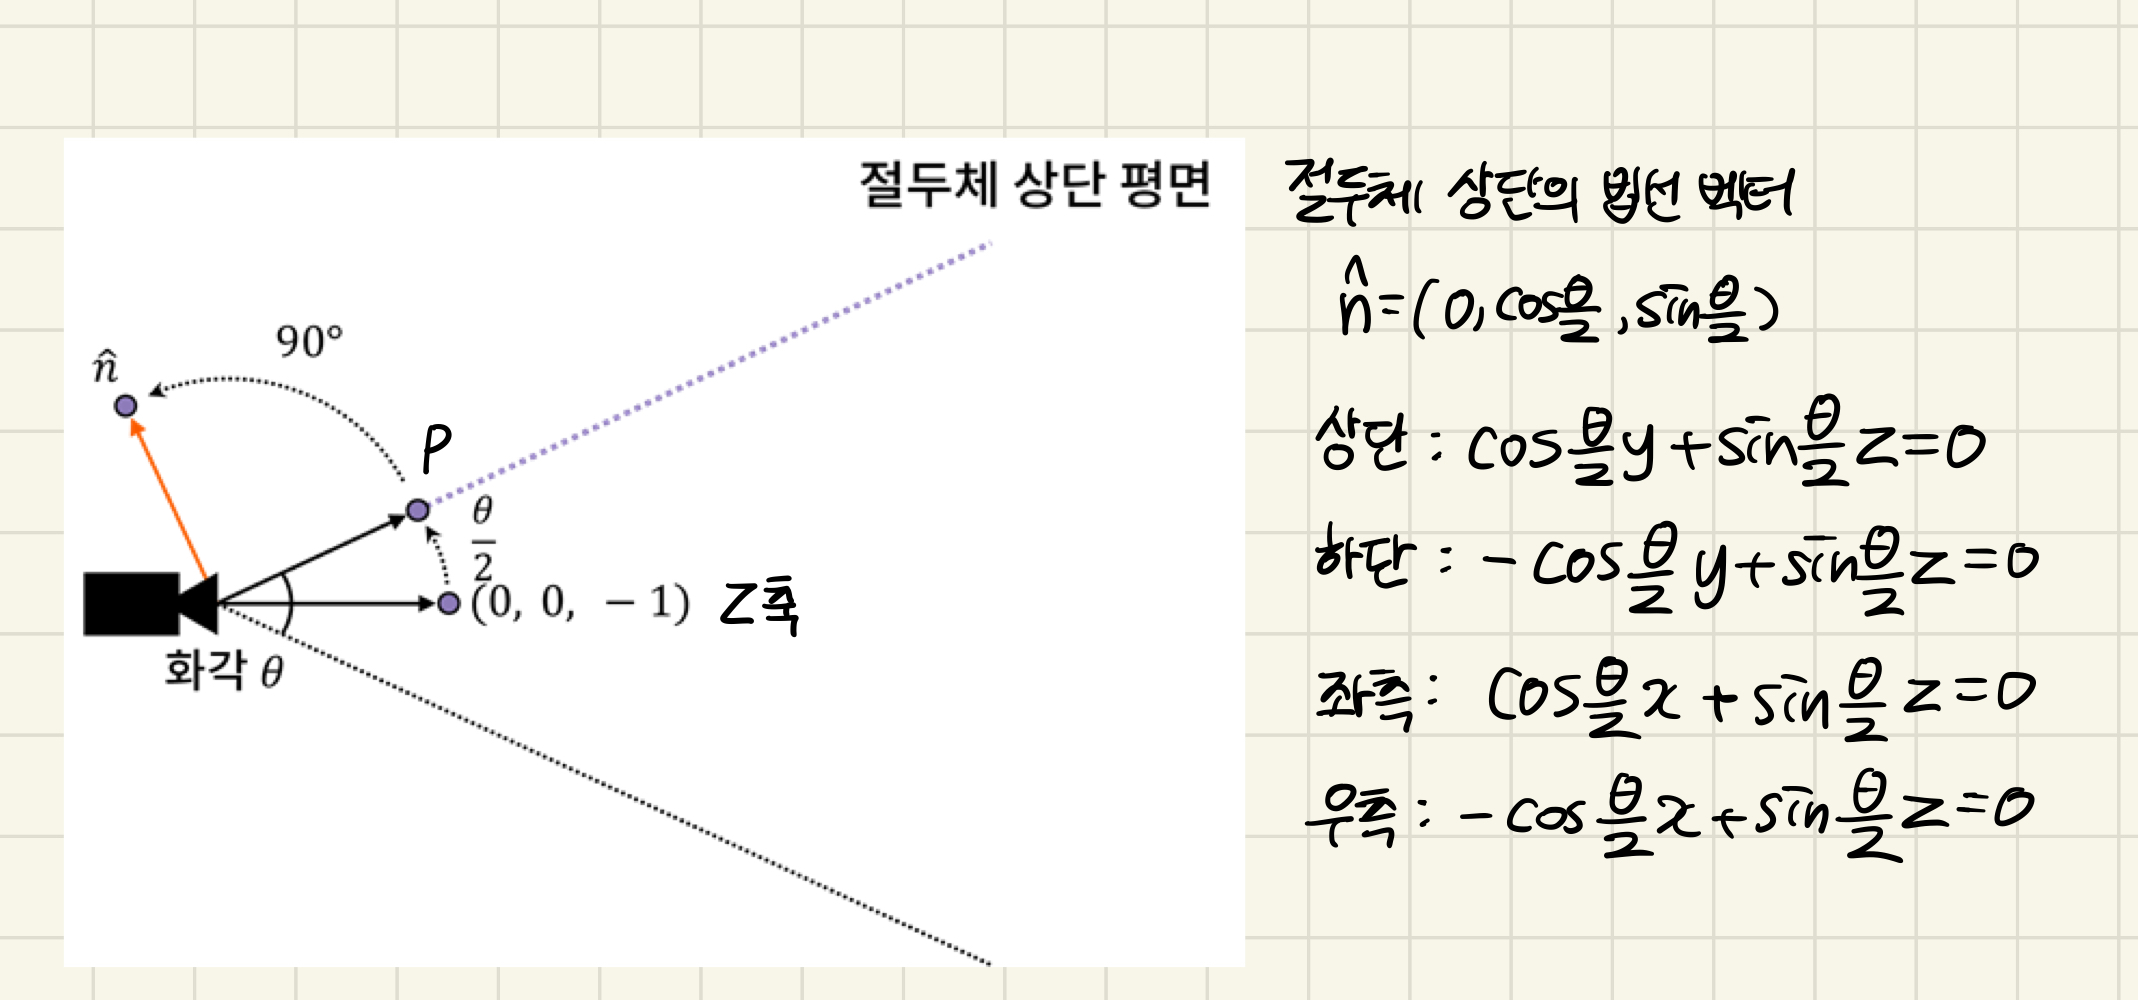 절두체 상단 평면
90°
n̂
P
θ/2
(0, 0, −1) Z축
화각 θ
절두체 상단의 법선 벡터
n̂=(0, cosθ/2, sinθ/2)
상단 : cosθ/2y+sinθ/2z=0
하단 : -cosθ/2y+sinθ/2z=0
좌측 : cosθ/2x+sinθ/2z=0
우측 : -cosθ/2x+sinθ/2z=0